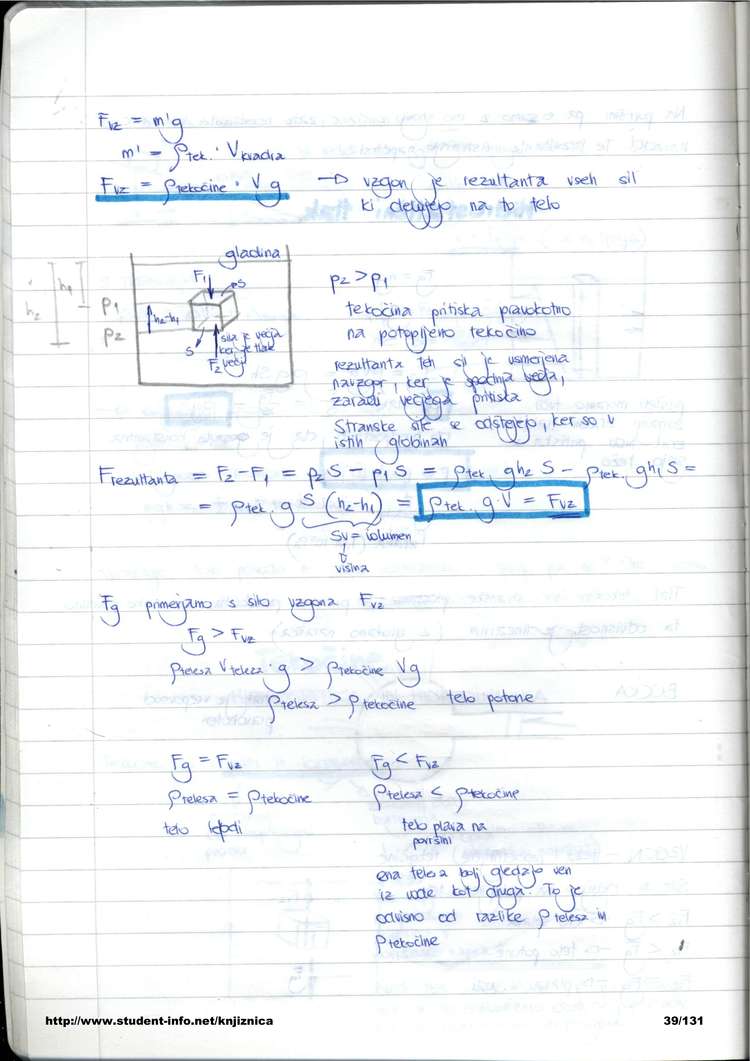 Fvz = m'g
m' = ρtek. · Vkvadra
Fvz = ρtekočine · V g → vzgon je rezultanta vseh sil
ki delujejo na to telo
gladina
F1
pS
h1
h2
p1
p2
h2-h1
S
sila je večja
ker je tlak
večji
F2
p2 > p1
tekočina pritiska pravokotno
na potopljeno tekočino
rezultanta teh sil je usmerjena
navzgor, ker je spodnja večja,
zaradi večjega pritiska
Stranske sile se odštejejo, ker so v
istih globinah
Frezultanta = F2 - F1 = p2 S - p1 S = ρtek. g h2 S - ρtek. g h1 S =
= ρtek. g S (h2-h1) = ρtek. g · V = Fvz
Sv = volumen
višina
Fg primerjamo s silo vzgona Fvz
Fg > Fvz
ρtelesa Vtelesa · g > ρtekočine Vg
ρtelesa > ρtekočine telo potone
Fg = Fvz
ρtelesa = ρtekočine
telo lebdi
Fg < Fvz
ρtelesa < ρtekočine
telo plava na
površini
ena telesa bolj gledajo ven
iz vode kot druga. To je
odvisno od razlike ρtelesa in
ρtekočine
http://www.student-info.net/knjiznica 39/131